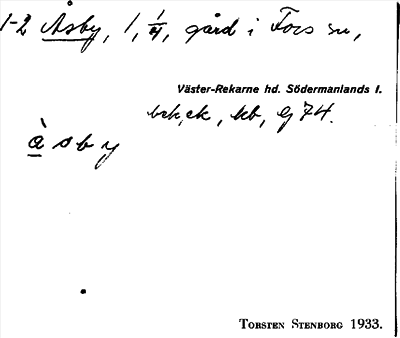 1-2 Åsby, 1, 1/4, gård i Fors sn,
Väster-Rekarne hd. Södermanlands l.
kb, Gj 74.
å s b y
TORSTEN STENBORG 1933.